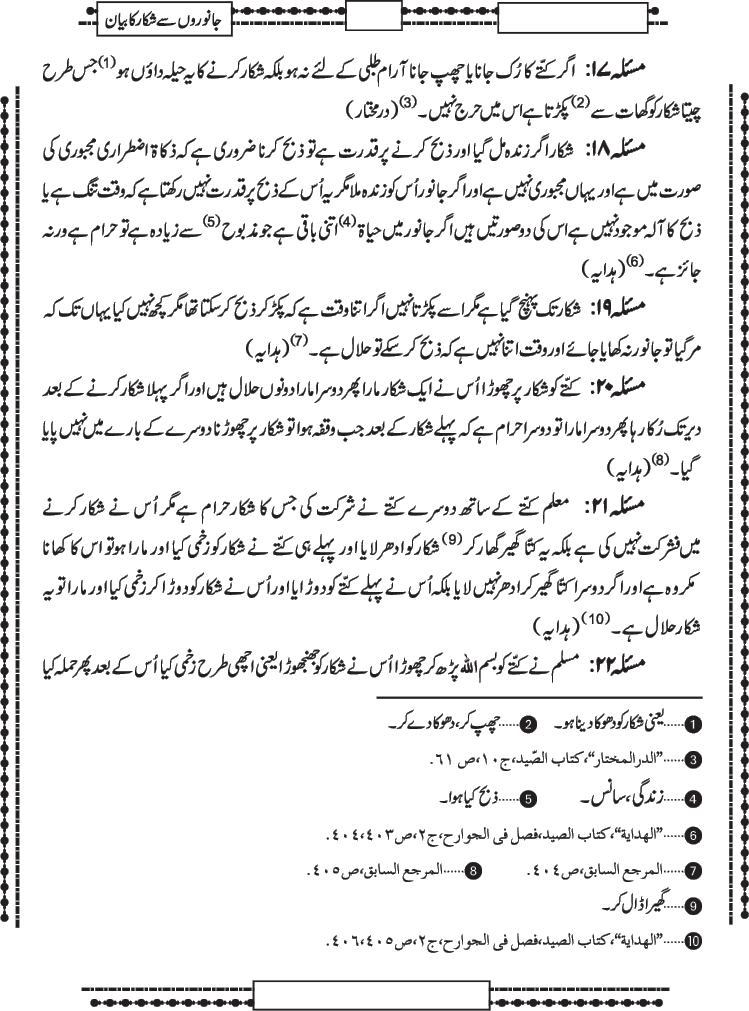 جانوروں سے شکار کا بیان
مسئلہ ۱۷: اگر کتّے کا رُک جانا یا چھپ جانا آرام طلبی کے لئے نہ ہو بلکہ شکار کرنے کا یہ حیلہ داؤں ہو (1) جس طرح
چیتا شکار کو گھات سے (2) پکڑتا ہے اس میں حرج نہیں۔ (3) (درمختار)
مسئلہ ۱۸: شکار اگر زندہ مل گیا اور ذبح کرنے پر قدرت ہے تو ذبح کرنا ضروری ہے کہ ذکاۃ اضطراری مجبوری کی
صورت میں ہے اور یہاں مجبوری نہیں ہے اور اگر جانور اُس کو زندہ ملا مگر یہ اُس کے ذبح پر قدرت نہیں رکھتا ہے کہ وقت تنگ ہے یا
ذبح کا آلہ موجود نہیں ہے اس کی دو صورتیں ہیں اگر جانور میں حیاۃ (4) اتنی باقی ہے جو مذبوح (5) سے زیادہ ہے تو حرام ہے ورنہ
جائز ہے۔ (6) (ہدایہ)
مسئلہ ۱۹: شکار تک پہنچ گیا ہے مگر اسے پکڑتا نہیں اگر اتنا وقت ہے کہ پکڑ کر ذبح کر سکتا تھا مگر کچھ نہیں کیا یہاں تک کہ
مر گیا تو جانور نہ کھایا جائے اور وقت اتنا نہیں ہے کہ ذبح کر سکے تو حلال ہے۔ (7) (ہدایہ)
مسئلہ ۲۰: کتّے کو شکار پر چھوڑا اُس نے ایک شکار مارا پھر دوسرا مارا دونوں حلال ہیں اور اگر پہلا شکار کرنے کے بعد
دیر تک رُکا رہا پھر دوسرا مارا تو دوسرا حرام ہے کہ پہلے شکار کے بعد جب وقفہ ہوا تو شکار پر چھوڑنا دوسرے کے بارے میں نہیں پایا
گیا۔ (8) (ہدایہ)
مسئلہ ۲۱: معلم کتّے کے ساتھ دوسرے کتّے نے شرکت کی جس کا شکار حرام ہے مگر اُس نے شکار کرنے
میں شرکت نہیں کی ہے بلکہ یہ کتّا گھیر گھار کر (9) شکار کو ادھر لایا اور پہلے ہی کتّے نے شکار کو زخمی کیا اور مارا ہو تو اس کا کھانا
مکروہ ہے اور اگر دوسرا کتا گھیر کر ادھر نہیں لایا بلکہ اُس نے پہلے کتّے کو دوڑایا اور اُس نے شکار کو دوڑا کر زخمی کیا اور مارا تو یہ
شکار حلال ہے۔ (10) (ہدایہ)
مسئلہ ۲۲: مسلم نے کتّے کو بسم اللہ پڑھ کر چھوڑا اُس نے شکار کو جھنجھوڑا یعنی اچھی طرح زخمی کیا اُس کے بعد پھر حملہ کیا
1......یعنی شکار کو دھوکا دینا ہو۔ 2......چھپ کر، دھوکا دے کر۔
3......"الدرالمختار"، کتاب الصّید، ج۱۰، ص ٦١.
4......زندگی، سانس۔ 5......ذبح کیا ہوا۔
6......"الھدایۃ"، کتاب الصید، فصل فی الجوارح، ج۲، ص٤٠٣، ٤٠٤.
7......المرجع السابق، ص٤٠٤. 8......المرجع السابق، ص٤٠٥.
9......گھیرا ڈال کر۔
10......"الھدایۃ"، کتاب الصید، فصل فی الجوارح، ج۲، ص٤٠٥، ٤٠٦.